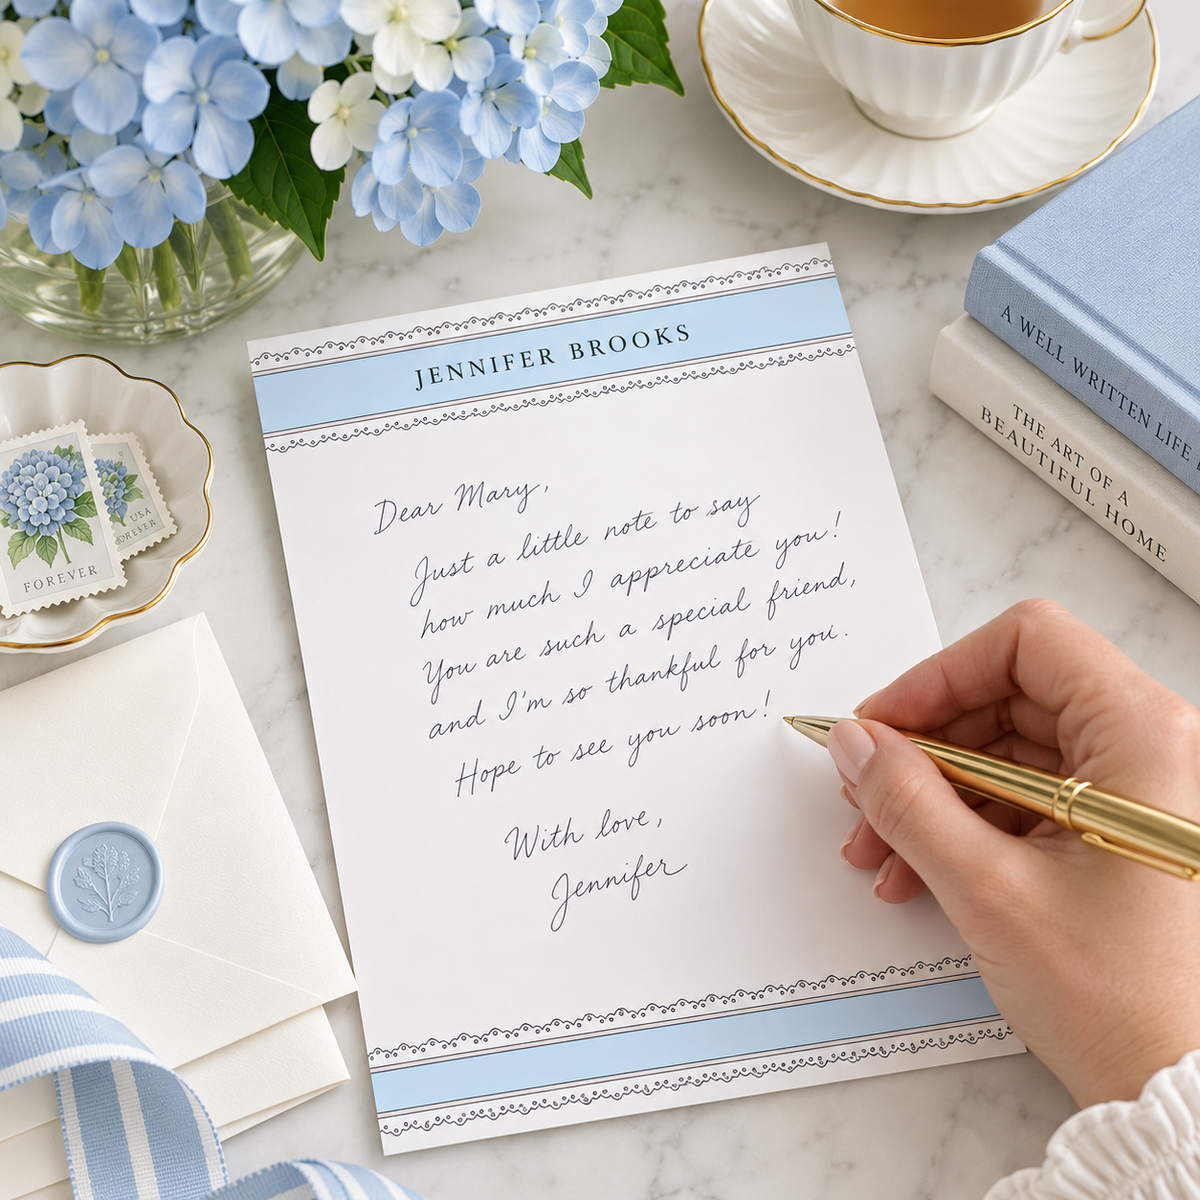 JENNIFER BROOKS
Dear Mary,
Just a little note to say
how much I appreciate you!
You are such a special friend,
and I'm so thankful for you.
Hope to see you soon!
With love,
Jennifer
A WELL WRITTEN LIFE
THE ART OF A
BEAUTIFUL HOME
FOREVER
USA
FOREVER